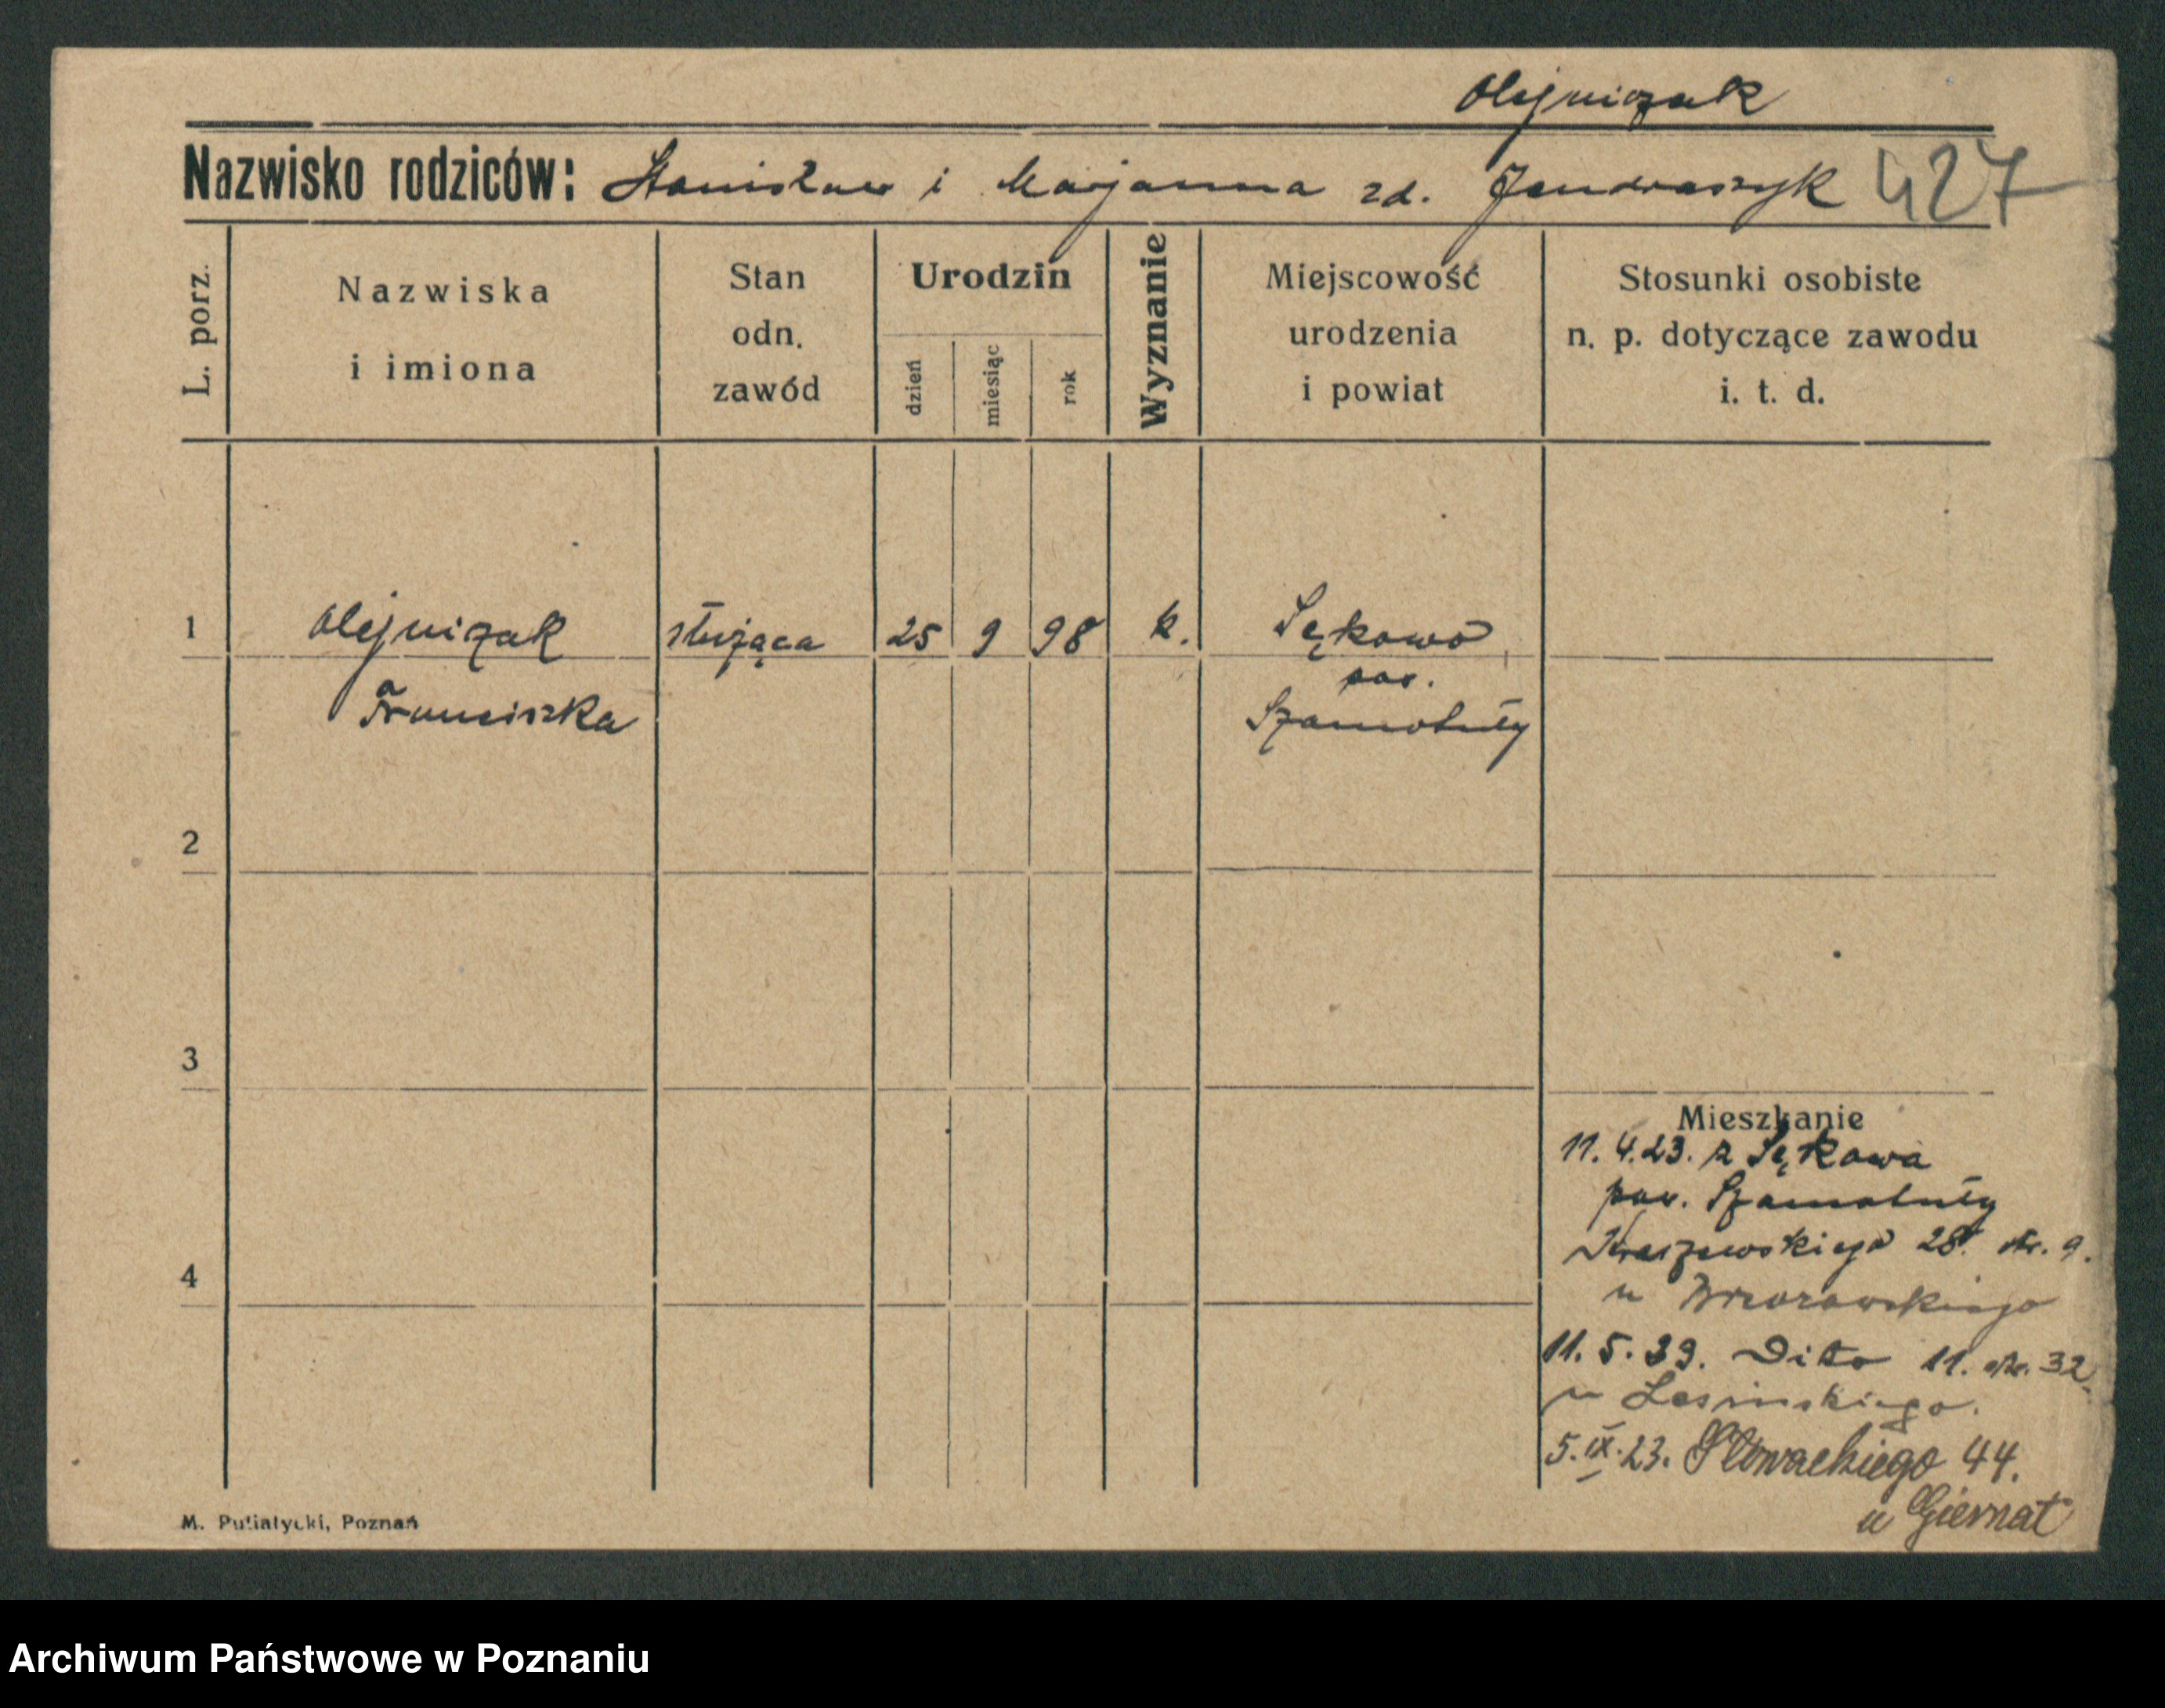 Olejniczak
Nazwisko rodziców: Stanisław i Marjanna zd. Jendraszyk 427
L. porz.
Nazwiska
i imiona
Stan
odn.
zawód
Urodzin
dzień
miesiąc
rok
Wyznanie
Miejscowość
urodzenia
i powiat
Stosunki osobiste
n. p. dotyczące zawodu
i. t. d.
1 Olejniczak służąca 25 9 98 k. Sękowo
pow.
Franciszka Szamotuły
2
3
Mieszkanie
11. 4. 23. z Sękowa
pow. Szamotuły
Kraszewskiego 28. str. 9.
4
u Brzozowskiego
11. 5. 23. Dito 11. str. 32
u Lesinskiego.
5. IX. 23. Słowackiego 44.
u Giernat
M. Putiatycki, Poznań
Archiwum Państwowe w Poznaniu